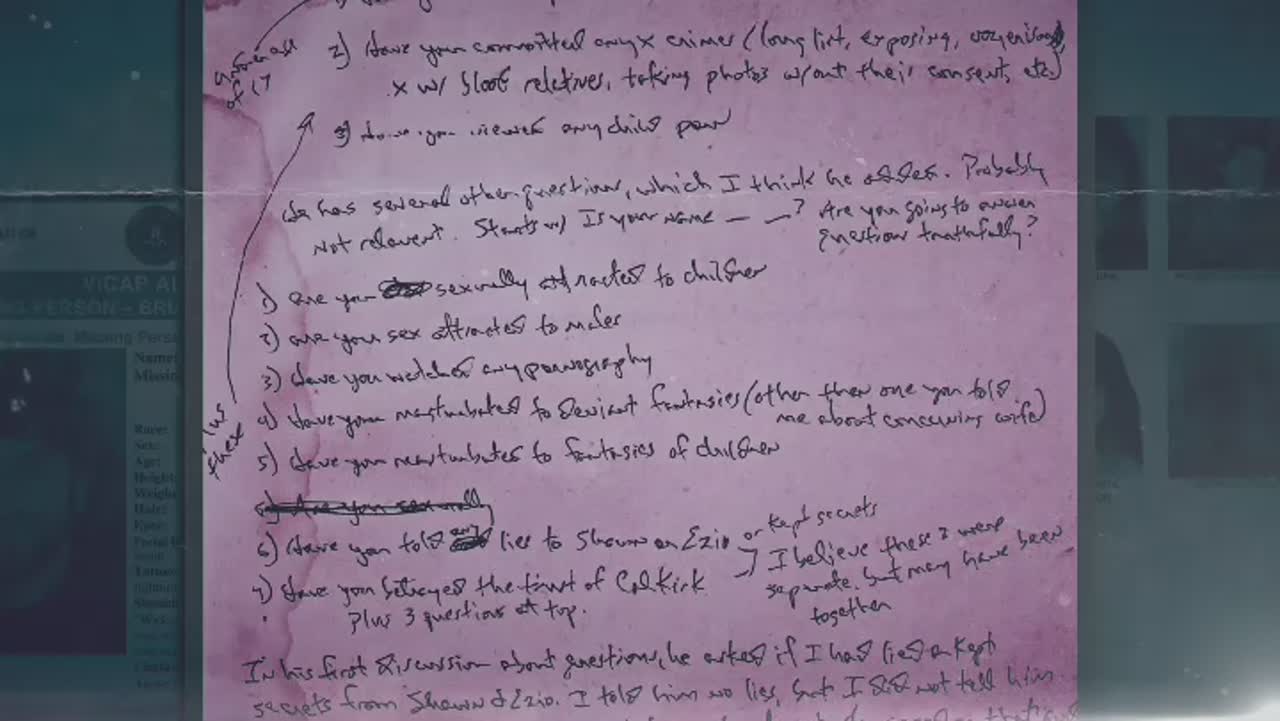 2) Have you committed any x crimes (long list, exposing, voyerism,
x w/ blood relatives, taking photos w/out their consent, etc.)
of 17
3) Have you viewed any child porn
He has several other questions, which I think he asked. Probably
not relevent. Starts w/ Is your name — —? Are you going to answer
questions truthfully?
1) Are you sexually attracted to children
2) Are you sex attracted to males
3) Have you watched any pornography
4) Have you masturbated to deviant fantasies (other then one you told
me about concerning wife)
5) Have you masturbated to fantasies of children
6) Are you sexuall
6) Have you told any lies to Shawn or Ezio or kept secrets
7) Have you betrayed the trust of Cal Kirk
I believe these 2 were
separate, but may have been
together
Plus 3 questions at top.
In his first discussion about questions, he asked if I had lied or kept
secrets from Shawn & Ezio. I told him no lies, but I did not tell him
VICAP AL
PERSON – BRU
Missing Pers
Name:
Missin
Race:
Sex:
Age:
Height:
Weigh
Hair:
Eyes: